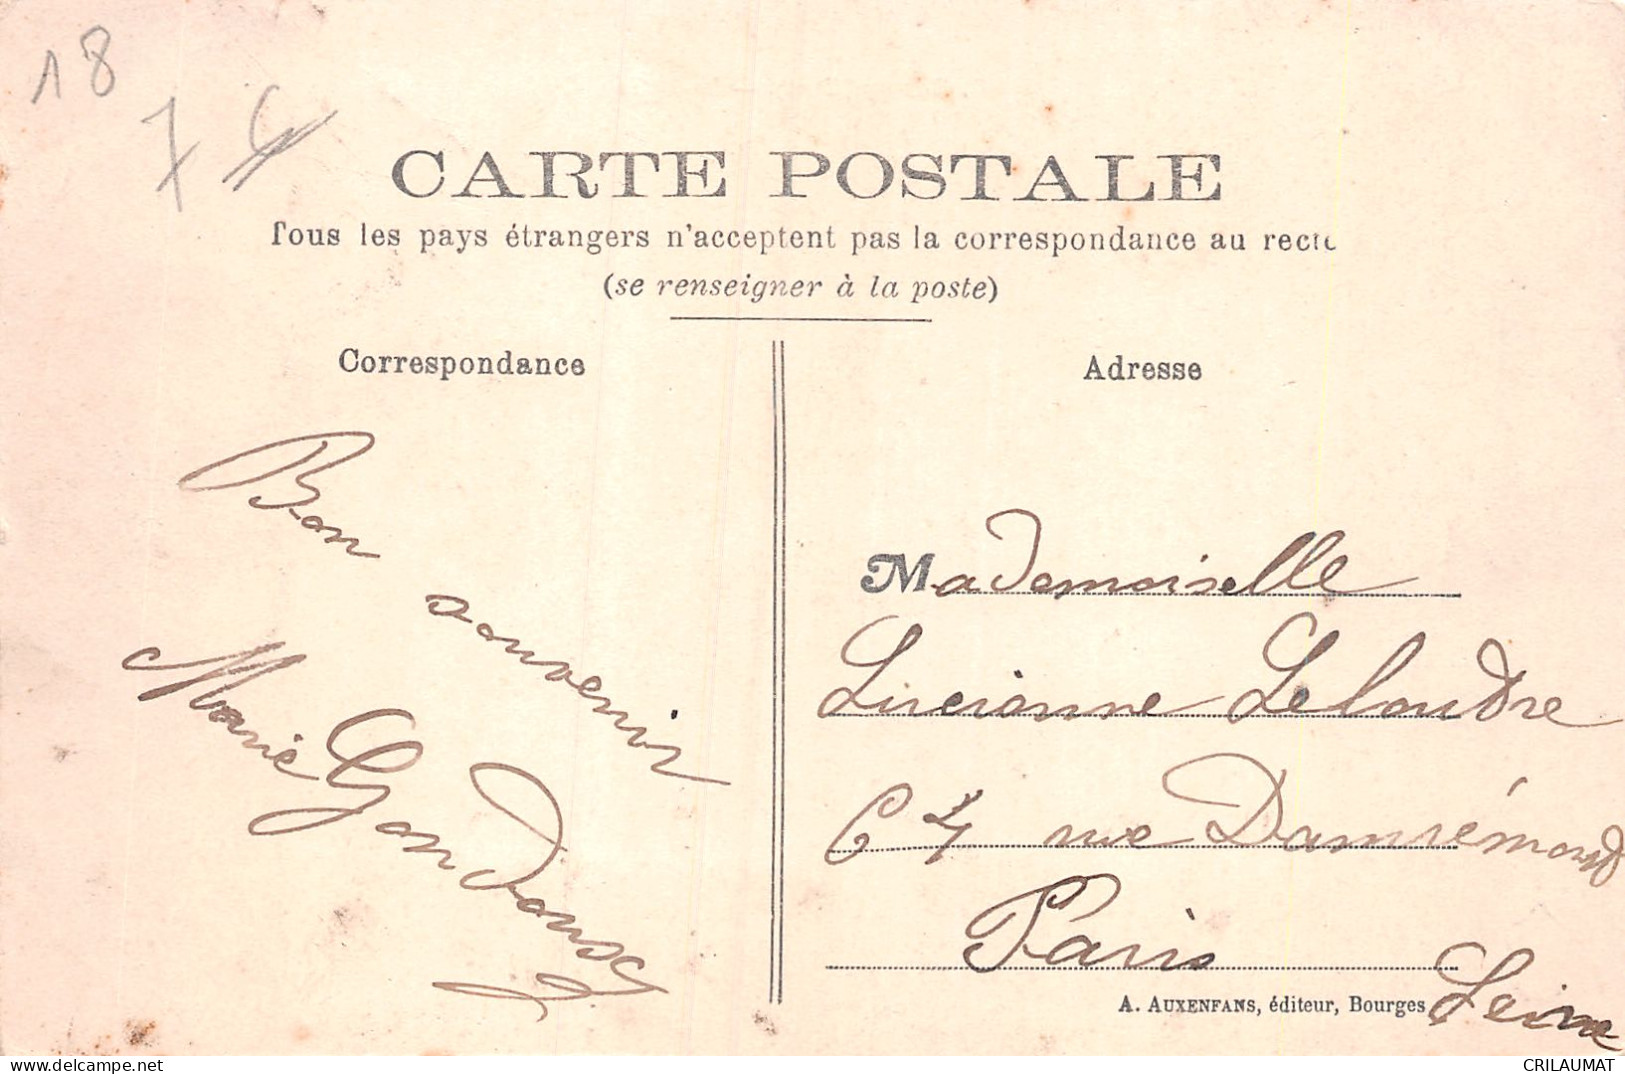 18
7
CARTE POSTALE
Tous les pays étrangers n'acceptent pas la correspondance au recto
(se renseigner à la poste)
Correspondance
Bon
souvenir
Marie
Adresse
Mademoiselle
Lucienne Leloudre
64 rue Damrémond
Paris
Seine
A. AUXENFANS, éditeur, Bourges
CRILAUMAT